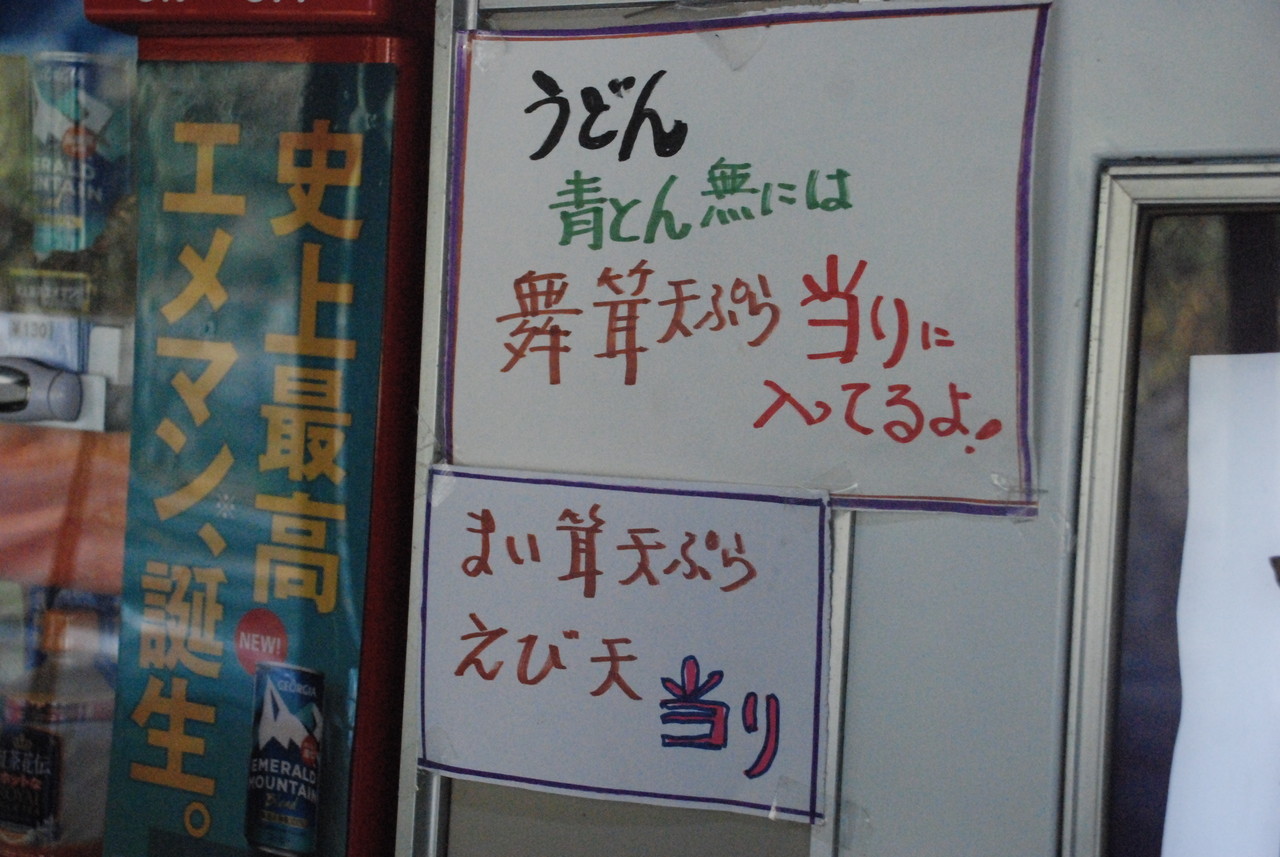 史上最高
エメマン、誕生。
※
NEW!
GEORGIA
EMERALD
MOUNTAIN
Blend
うどん
青とん無には
舞茸天ぷら当りに
入ってるよ!
まい茸天ぷら
えび天
当り
¥130